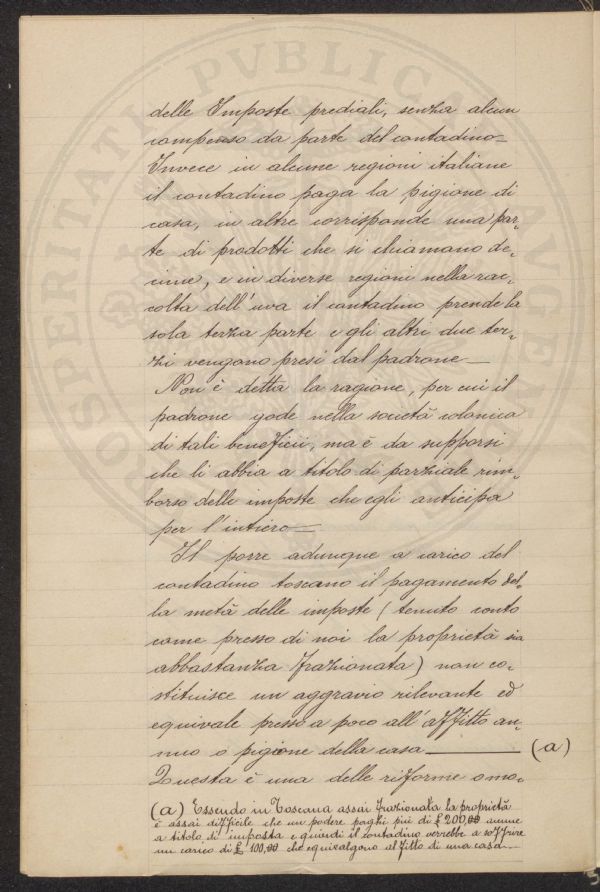 delle Imposte prediali, senza alcun
compenso da parte del contadino=
Invece in alcune regioni italiane
il contadino paga la pigione di
casa, in altre corrisponde una par-
te di prodotti che si chiamano de-
cime, e in diverse regioni nella rac-
colta dell'uva il contadino prende la
sola terza parte e gli altri due ter-
zi vengono presi dal padrone—
Non è detta la ragione, per cui il
padrone gode nella società colonica
di tali beneficii, ma è da supporsi
che li abbia a titolo di parziale rim-
borso delle imposte che egli anticipa
per l'intiero=
Il porre adunque a carico del
contadino toscano il pagamento del-
la metà delle imposte (tenuto conto
come presso di noi la proprietà sia
abbastanza frazionata) non co-
stituisce un aggravio rilevante ed
equivale presso a poco all'affitto an-
nuo o pigione della casa——— (a)
Questa è una delle riforme omo-
(a) Essendo in Toscana assai frazionata la proprietà
è assai difficile che un podere paghi più di £ 200,00 annue
a titolo di imposta e quindi il contadino verrebbe a soffrire
un carico di £ 100,00 che equivalgono al fitto di una casa—
PROSPERITATI PVBLICAE AVGENDAE